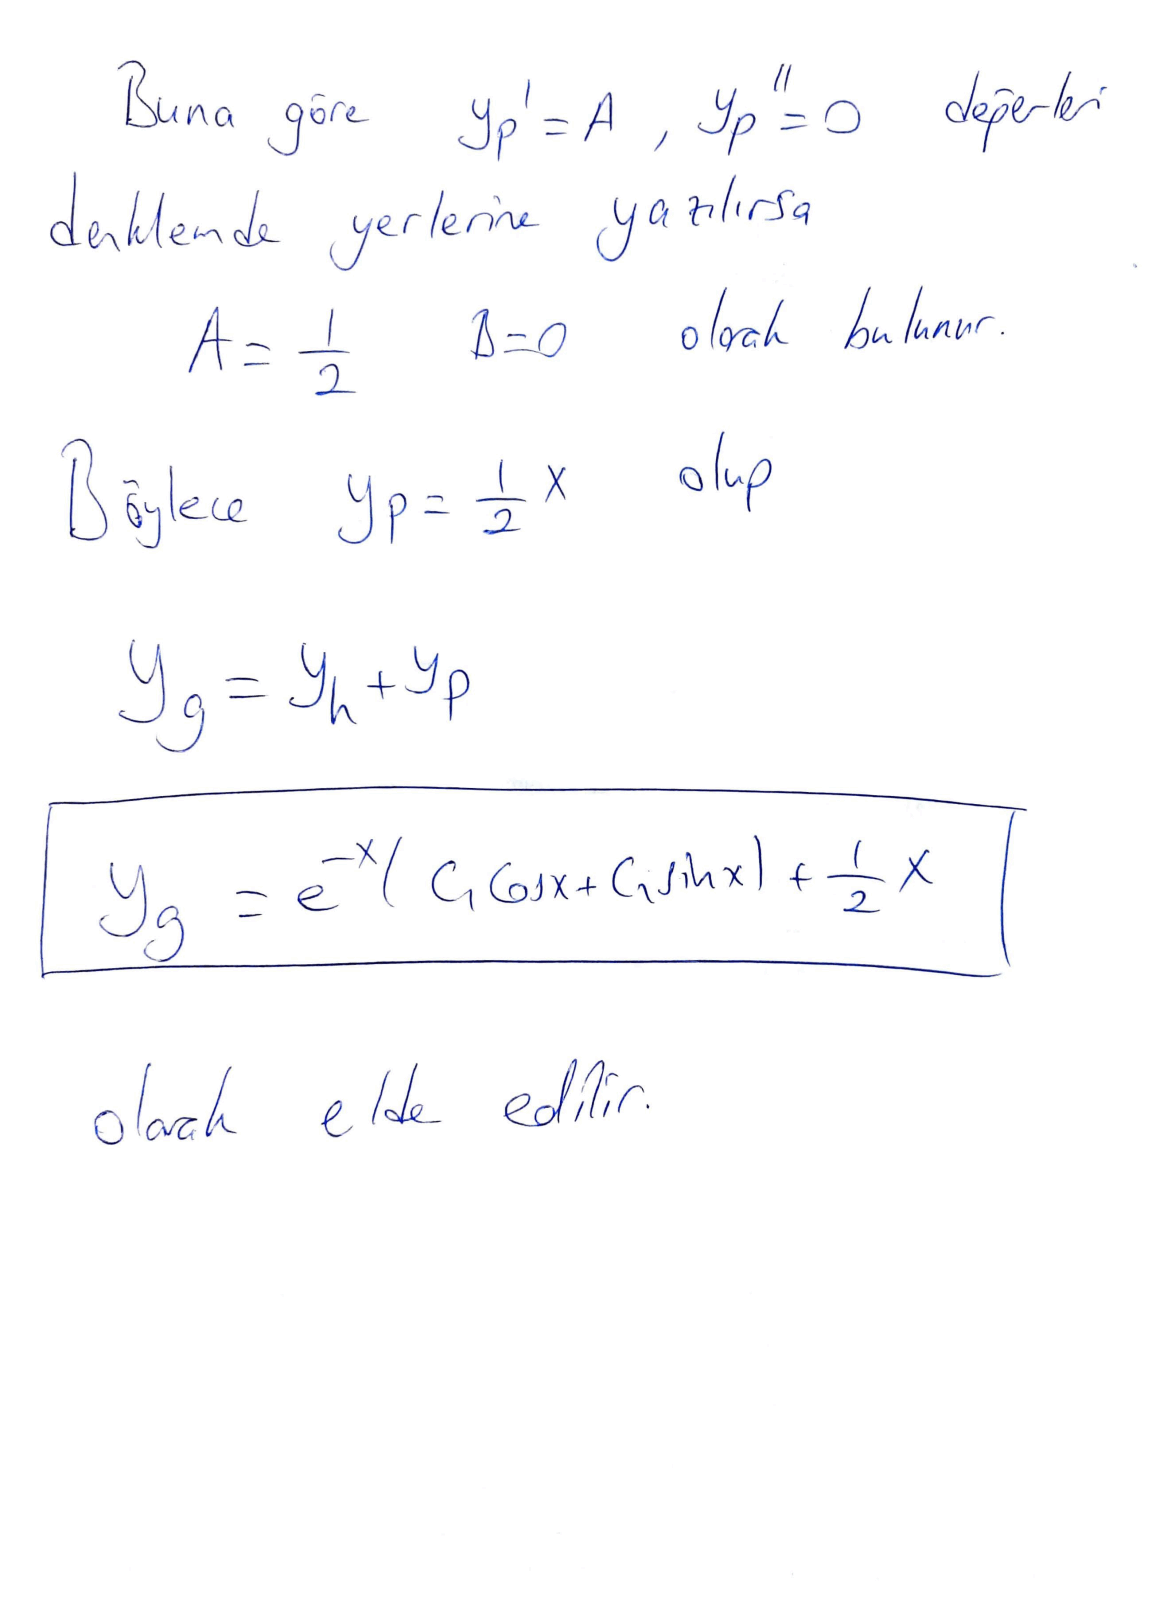 Buna göre yp' = A , yp'' = 0 değerleri
denklemde yerlerine yazılırsa
A = 1/2 B = 0 olarak bulunur.
Böylece yp = 1/2 x olup
yg = yh + yp
yg = e^-x ( C1 Cosx + C2 sinx ) + 1/2 x
olarak elde edilir.